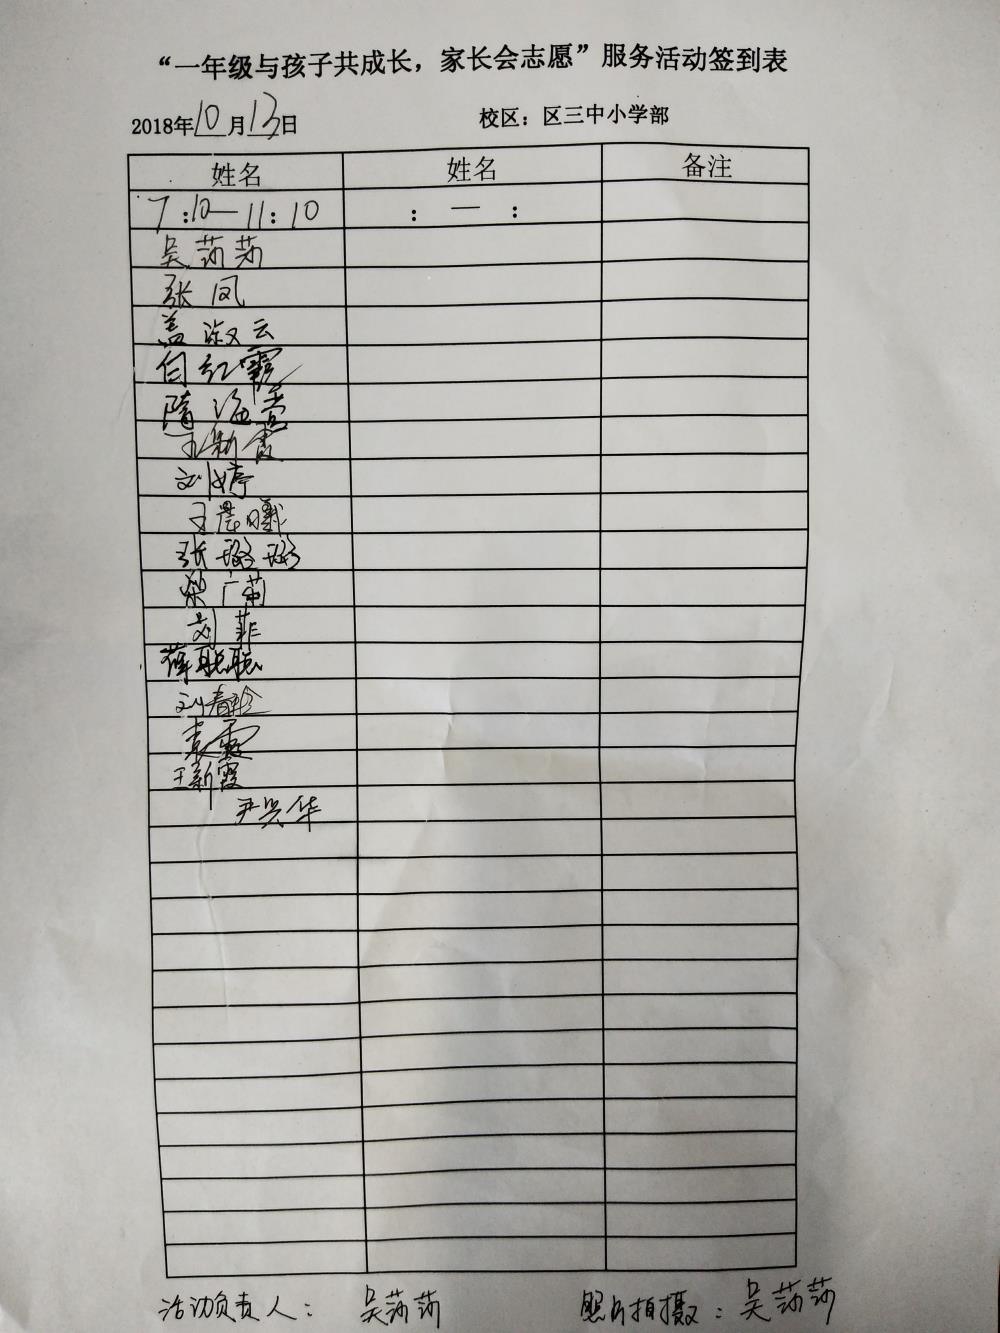 “一年级与孩子共成长，家长会志愿”服务活动签到表
2018年10月13日 校区：区三中小学部
姓名 姓名 备注
7:10—11:10 : — :
吴莎莎
张凤
盖淑云
白红霞
隋海营
王新霞
刘婷
王晨曦
张璐璐
梁广菊
刘菲
薛聪聪
刘春玲
袁霞
王新霞
尹兴华
活动负责人： 吴莎莎 照片拍摄：吴莎莎